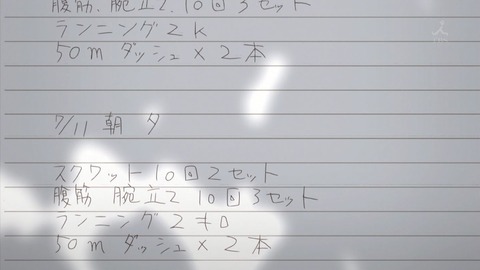 腹筋、腕立2、10回3セット
ランニング2k
50mダッシュ×2本
7/11 朝 夕
スクワット10回2セット
腹筋 腕立2 10回3セット
ランニング2キロ
50mダッシュ×2本